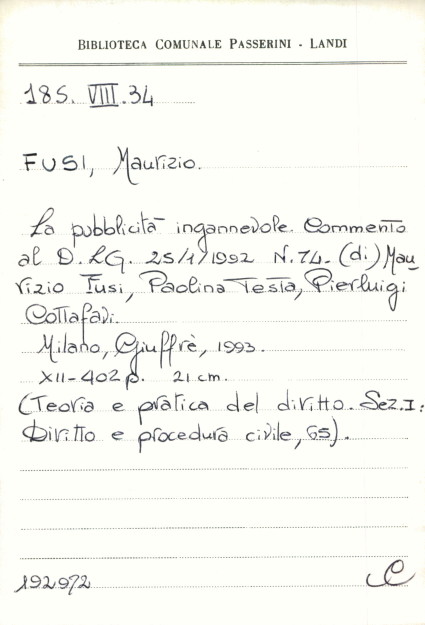 BIBLIOTECA COMUNALE PASSERINI - LANDI
185. VIII.34
FUSI, Maurizio.
La pubblicità ingannevole. Commento
al D. LG. 25/1/1992 N. 74. (di) Mau_
rizio Fusi, Paolina Testa, Pierluigi
Cottafavi.
Milano, Giuffrè, 1993.
XII-402 p. 21 cm.
(Teoria e pratica del diritto. Sez. I:
Diritto e procedura civile, 65).
192972
C